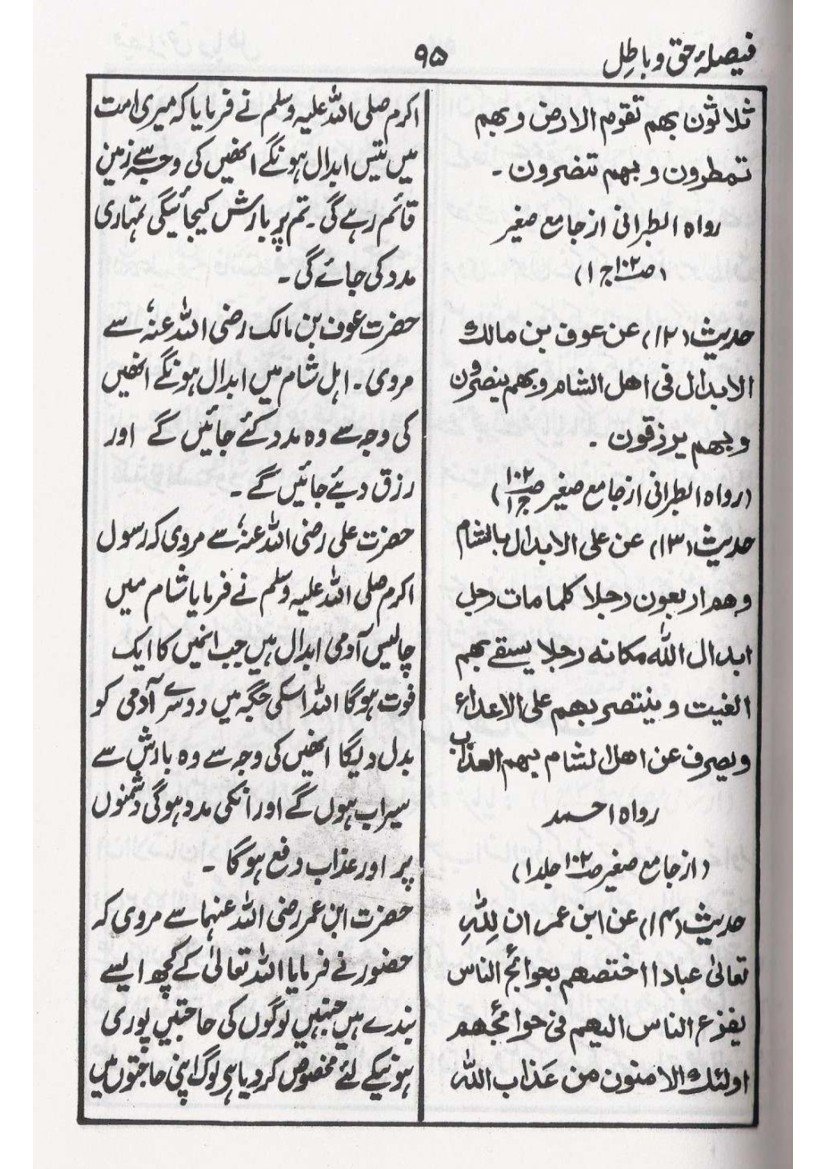 فیصلۂ حق و باطل
۹۵
ثلاثون بھم تقوم الارض و بھم
تمطرون و بھم تنضرون ۔
رواہ الطبرانی از جامع صغیر
(ص۱۰۲ ج۱)
حدیث (۱۲) عن عوف بن مالک
الابدال فی اھل الشام و بھم ینصرون
و بھم یرزقون ۔
(رواہ الطبرانی از جامع صغیر ص۱۰۲ ج۱)
حدیث (۱۳) عن علی الابدال بالشام
و ھم اربعون رجلا کلما مات رجل
ابدال اللہ مکانہ رجلا یسقے بھم
الغیث و ینتصر بھم علی الاعداء
و یصرف عن اھل الشام بھم العذاب
رواہ احمد
(از جامع صغیر ص۱۰۲ جلد۱)
حدیث (۱۴) عن ابن عمر ان للّٰہِ
تعالیٰ عبادا اختصھم بحوائج الناس
یفزع الناس الیھم فی حوائجھم
اولئک الامنون من عَذاب اللہ
اکرم صلی اللہ علیہ وسلم نے فرمایا کہ میری امت
میں تیس ابدال ہونگے انھیں کی وجہ سے زمین
قائم رہے گی ۔ تم پر بارش کیجائیگی تمہاری
مدد کی جائے گی ۔
حضرت عوف بن مالک رضی اللہ عنہٗ سے
مروی ۔ اہل شام میں ابدال ہونگے انھیں
کی وجہ سے وہ مدد کئے جائیں گے اور
رزق دیئے جائیں گے ۔
حضرت علی رضی اللہ عنہٗ سے مروی کہ رسول
اکرم صلی اللہ علیہ وسلم نے فرمایا شام میں
چالیس آدمی ابدال ہیں جب انمیں کا ایک
فوت ہوگا اللہ اسکی جگہ میں دوسرے آدمی کو
بدل دیگا انھیں کی وجہ سے وہ بارش سے
سیراب ہوں گے اور انکی مدد ہوگی دشمنوں
پر اور عذاب دفع ہوگا ۔
حضرت ابن عمر رضی اللہ عنہما سے مروی کہ
حضور نے فرمایا اللہ تعالیٰ کے کچھ ایسے
بندے ہیں جنہیں لوگوں کی حاجتیں پوری
ہونیکے لئے مخصوص کردیا ہی لوگ اپنی حاجتوں میں